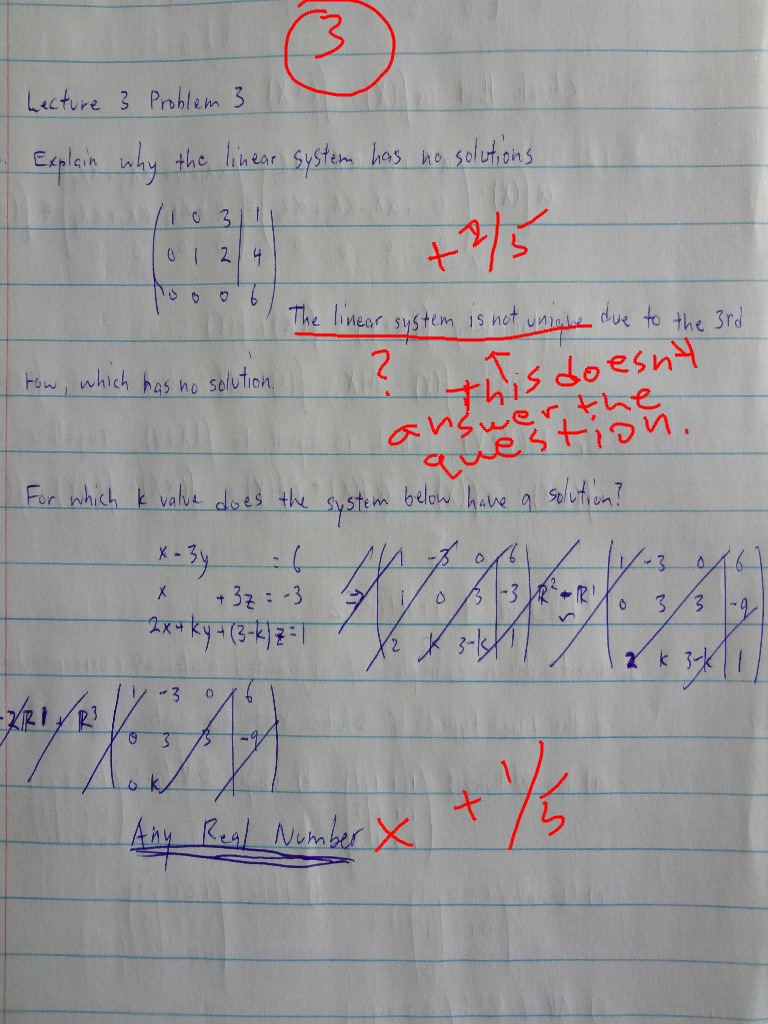 3
Lecture 3 Problem 3
Explain why the linear system has no solutions
1 0 3 | 1
0 1 2 | 4
0 0 0 | 6
+2/5
The linear system is not unique due to the 3rd
row, which has no solution.
? ↑ this doesn't
answer the
question.
For which k value does the system below have a solution?
x - 3y = 6 ⇒ (1 -3 0 | 6) (1 -3 0 | 6)
x + 3z = -3 (1 0 3 | -3) R2 - R1 (0 3 3 | -9)
2x + ky + (3-k)z = 1 (2 k 3-k | 1) ~ (2 k 3-k | 1)
-2R1 + R3 (1 -3 0 | 6)
(0 3 3 | -9)
(0 k |)
Any Real Number X +1/5